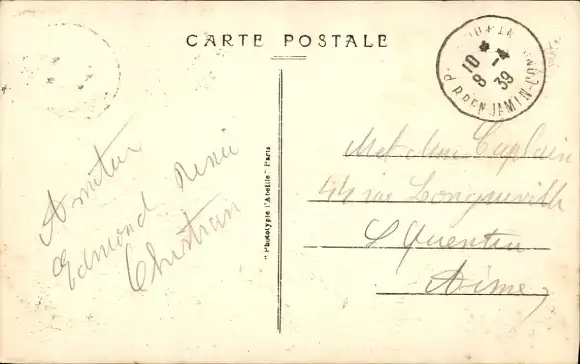 CARTE POSTALE
10 - 1
8 39
BENJAMIN-CONS
"Phototypie l'Abeille" Paris
Amitiés
Edmond Renée
Christian
M et Mme Caplain
44 rue Longueville
St Quentin
Aisne